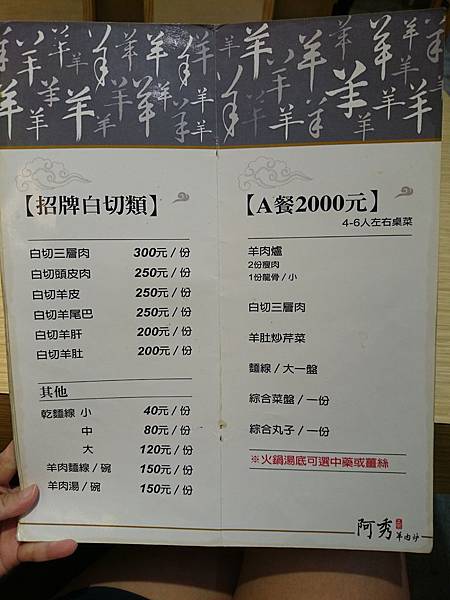 【招牌白切類】
白切三層肉 300元/份
白切頭皮肉 250元/份
白切羊皮 250元/份
白切羊尾巴 250元/份
白切羊肝 200元/份
白切羊肚 200元/份
其他
乾麵線 小 40元/份
中 80元/份
大 120元/份
羊肉麵線/碗 150元/份
羊肉湯/碗 150元/份
【A餐2000元】
4-6人左右桌菜
羊肉爐
2份瘦肉
1份龍骨/小
白切三層肉
羊肚炒芹菜
麵線/大一盤
綜合菜盤/一份
綜合丸子/一份
※火鍋湯底可選中藥或薑絲
阿秀羊肉爐